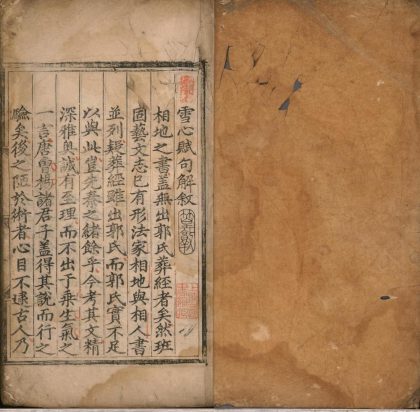 雪心賦句解敘
相地之書蓋無出郭氏葬經者矣然班
固藝文志已有形法家相地與相人書
並列疑葬經雖出郭氏而郭氏實不足
以與此豈先秦之緒餘乎今考其文精
深雅奧誠有至理而不出乎乘生氣之
一言唐曾楊諸君子蓋得其說而行之
驗矣後之陋於術者心目不逮古人乃